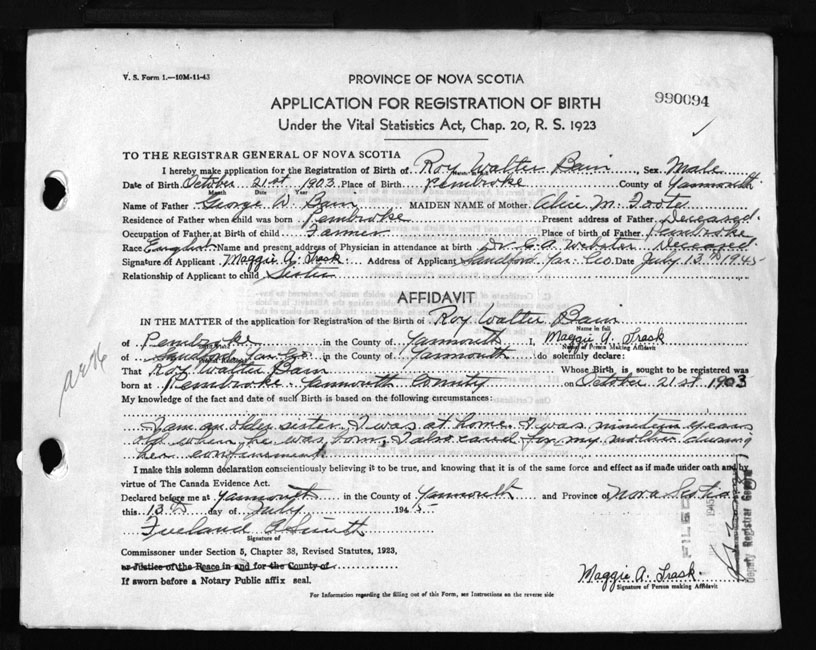 V. S. Form 1.—10M-11-43
PROVINCE OF NOVA SCOTIA
990094
APPLICATION FOR REGISTRATION OF BIRTH
Under the Vital Statistics Act, Chap. 20, R. S. 1923
TO THE REGISTRAR GENERAL OF NOVA SCOTIA
I hereby make application for the Registration of Birth of Roy Walter Bain, Sex Male
Date of Birth October 21st 1903 Place of Birth Pembroke County of Yarmouth
Month Date Year
Name of Father George W. Bain MAIDEN NAME of Mother Alice M. Foote
Residence of Father when child was born Pembroke Present address of Father Deceased
Occupation of Father at Birth of child Farmer Place of birth of Father Pembroke
Race English Name and present address of Physician in attendance at birth Dr. C. A. Webster Deceased
Signature of Applicant Maggie A. Trask Address of Applicant Sandford Yar. Co. Date July 13th 1945
Relationship of Applicant to child Sister
AFFIDAVIT
IN THE MATTER of the application for Registration of the Birth of Roy Walter Bain
Name in full
of Pembroke in the County of Yarmouth I, Maggie A. Trask
Name of Person Making Affidavit
of Sandford Yar. Co. in the County of Yarmouth do solemnly declare:
That Roy Walter Bain Whose Birth is sought to be registered was
born at Pembroke Yarmouth County on October 21st 1903
My knowledge of the fact and date of such Birth is based on the following circumstances:
I am an older sister. I was at home. I was nineteen years
old when he was born, I also cared for my mother during
her confinement
I make this solemn declaration conscientiously believing it to be true, and knowing that it is of the same force and effect as if made under oath and by
virtue of The Canada Evidence Act.
Declared before me at Yarmouth in the County of Yarmouth and Province of Nova Scotia
this 13th day of July 1945
Signature of
Commissoner under Section 5, Chapter 38, Revised Statutes, 1923,
or Justice of the Peace in and for the County of
If sworn before a Notary Public affix seal.
Maggie A. Trask
Signature of Person making Affidavit
For Information regarding the filling out of this Form, see Instructions on the reverse side
FILED
Deputy Registrar General